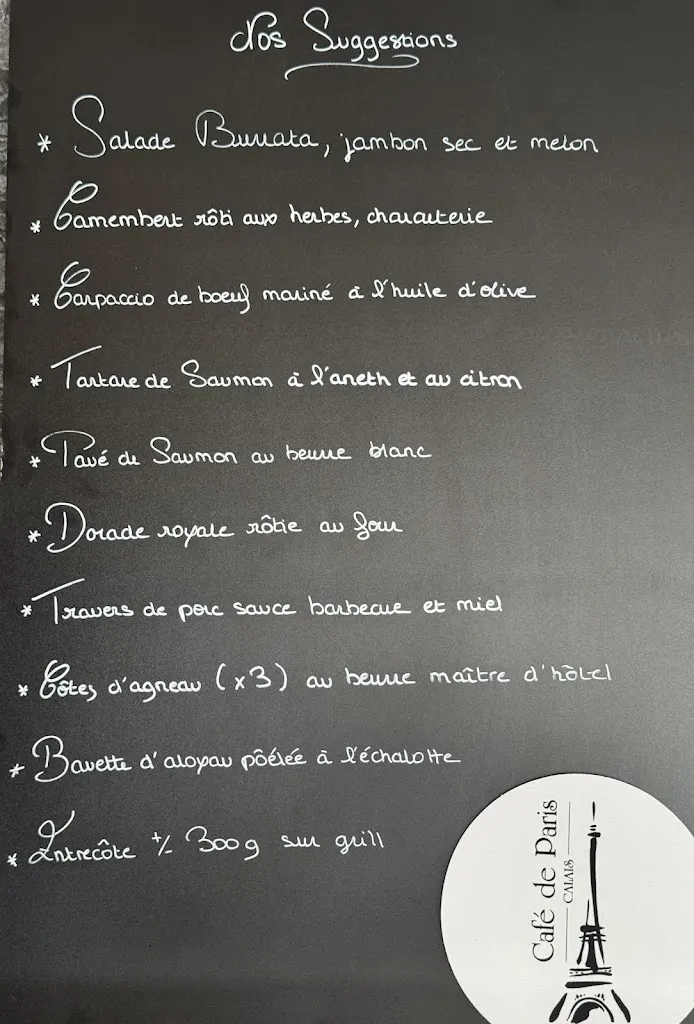 Nos Suggestions
* Salade Burrata, jambon sec et melon
* Camembert rôti aux herbes, charcuterie
* Carpaccio de boeuf mariné à l'huile d'olive
* Tartare de Saumon à l'aneth et au citron
* Pavé de Saumon au beurre blanc
* Dorade royale rôtie au four
* Travers de porc sauce barbecue et miel
* Côtes d'agneau (x3) au beurre maître d'hôtel
* Bavette d'aloyau pôélée à l'échalotte
* Entrecôte +/- 300g sur grill
Café de Paris
CALAIS